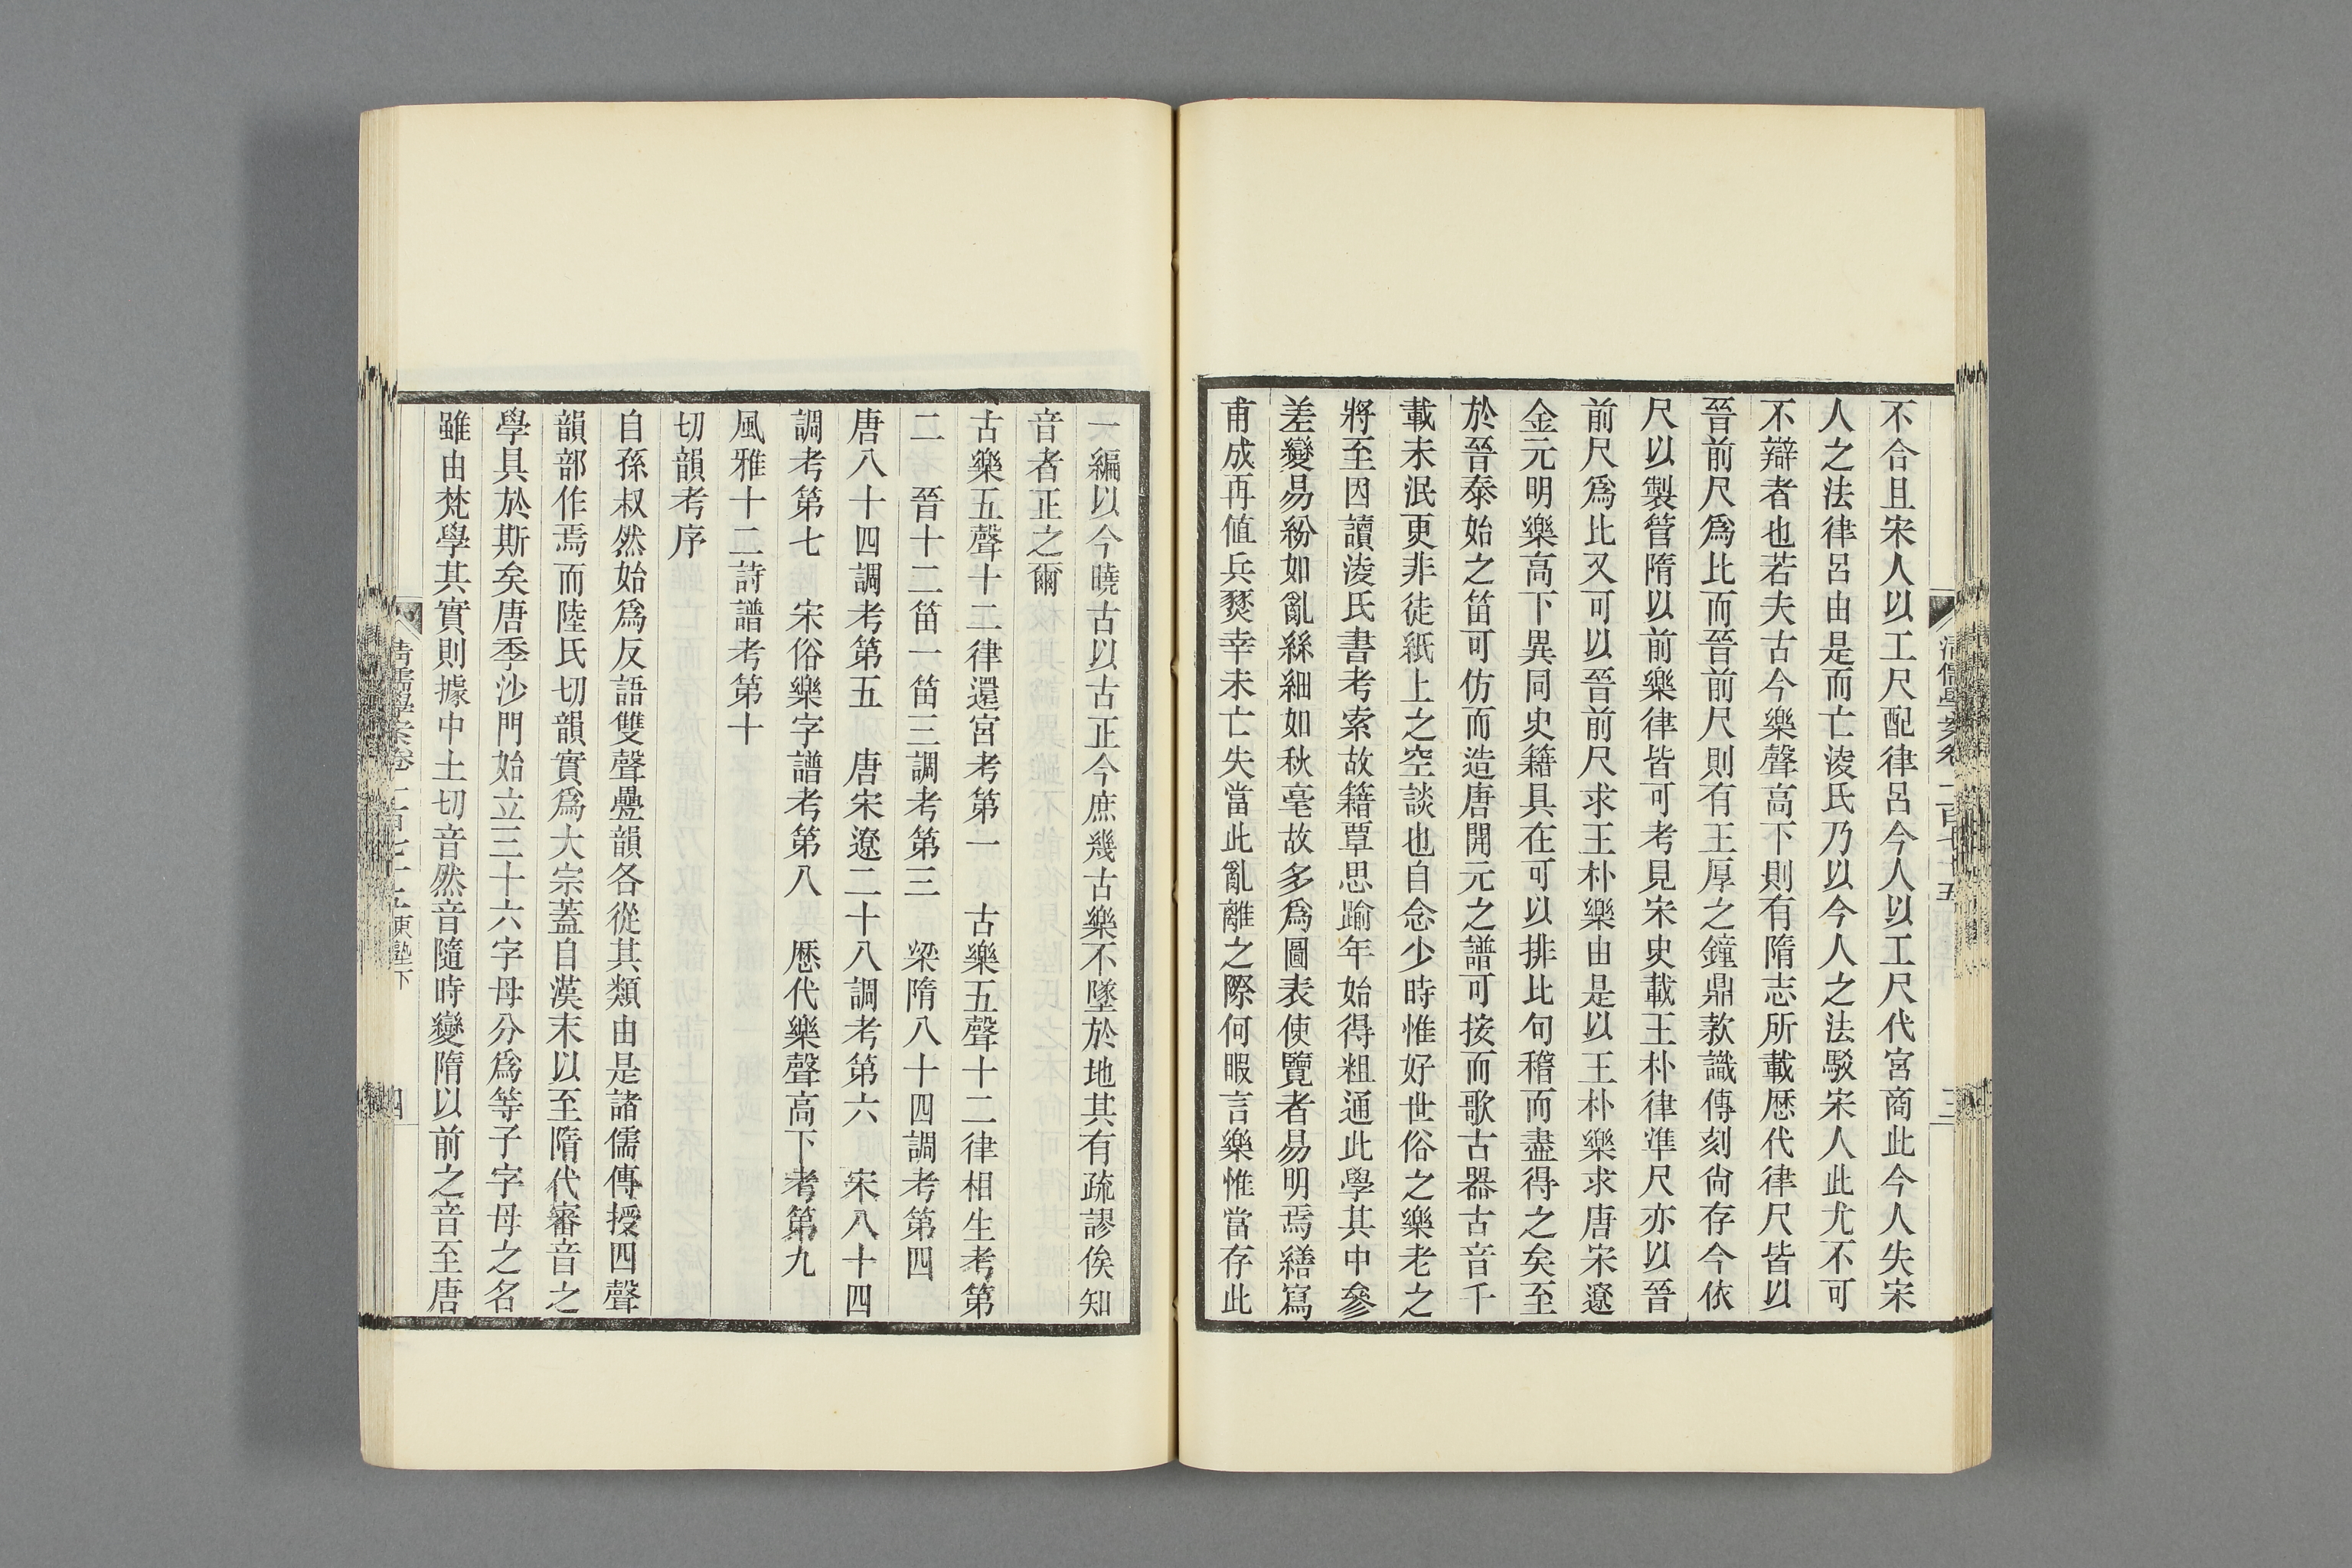 不合且宋人以工尺配律呂今人以工尺代宮商此今人失宋
人之法律呂由是而亡淩氏乃以今人之法駁宋人此尤不可
不辯者也若夫古今樂聲高下則有隋志所載歷代律尺皆以
晉前尺爲比而晉前尺則有王厚之鐘鼎款識傳刻尚存今依
尺以製管隋以前樂律皆可考見宋史載王朴律準尺亦以晉
前尺爲比又可以晉前尺求王朴樂由是以王朴樂求唐宋遼
金元明樂高下異同史籍具在可以排比句稽而盡得之矣至
於晉泰始之笛可仿而造唐開元之譜可按而歌古器古音千
載未泯更非徒紙上之空談也自念少時惟好世俗之樂老之
將至因讀淩氏書考索故籍覃思踰年始得粗通此學其中參
差變易紛如亂絲細如秋毫故多爲圖表使覽者易明焉繕寫
甫成再値兵燹幸未亡失當此亂離之際何暇言樂惟當存此
一編以今曉古以古正今庶幾古樂不墜於地其有疏謬俟知
音者正之爾
古樂五聲十二律還宮考第一　古樂五聲十二律相生考第
二　晉十二笛一笛三調考第三　梁隋八十四調考第四
唐八十四調考第五　唐宋遼二十八調考第六　宋八十四
調考第七　宋俗樂字譜考第八　歷代樂聲高下考第九
風雅十二詩譜考第十
切韻考序
自孫叔然始爲反語雙聲疊韻各從其類由是諸儒傳授四聲
韻部作焉而陸氏切韻實爲大宗蓋自漢末以至隋代審音之
學具於斯矣唐季沙門始立三十六字母分爲等子字母之名
雖由梵學其實則據中土切音然音隨時變隋以前之音至唐